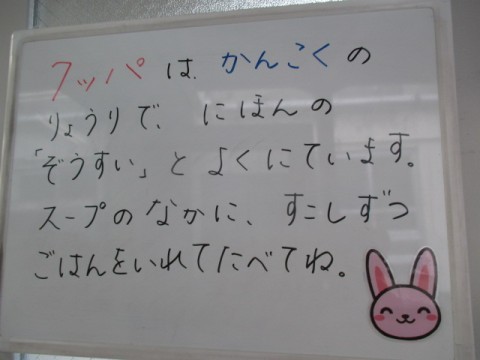 クッパは、かんこくの
りょうりで、にほんの
「ぞうすい」とよくにています。
スープのなかに、すこしずつ
ごはんをいれてたべてね。